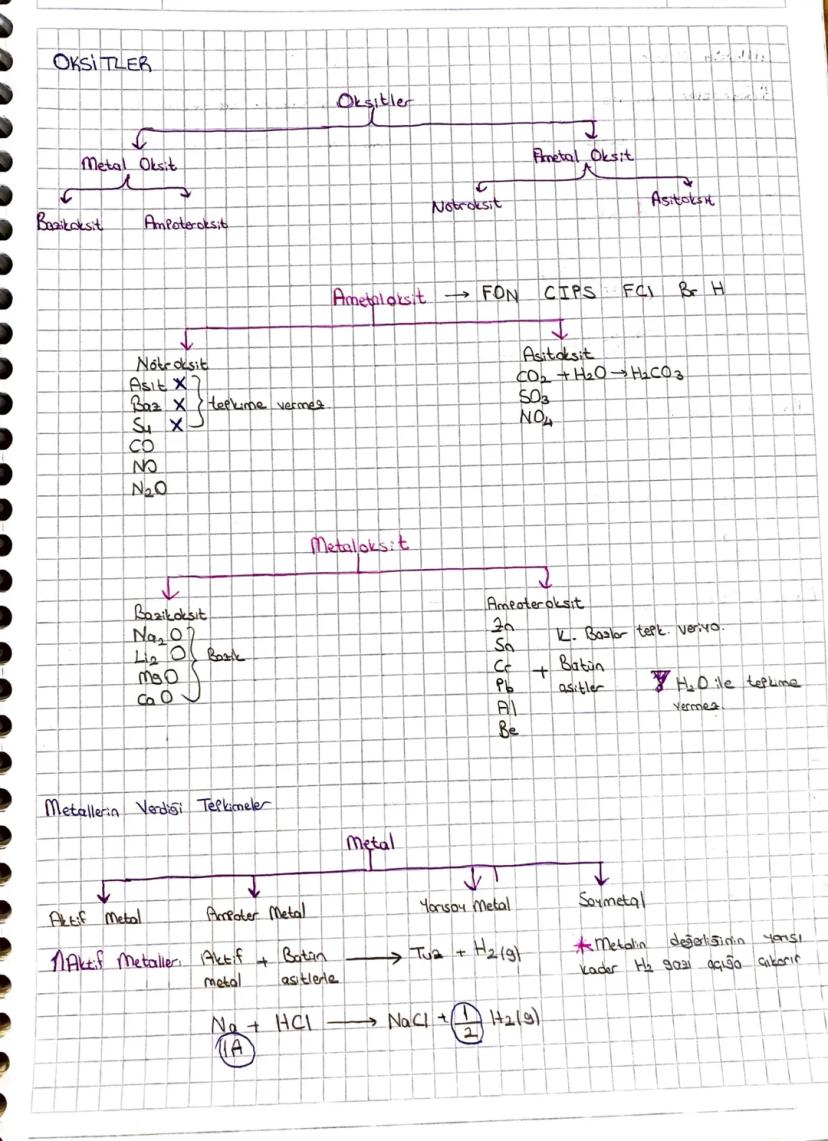 OKSİTLER
Oksitler
Metal Oksit
Ametal Oksit
Bazikoksit
Ampoteroksit
Nötroksit
Asitoksit
Ametaloksit → FON CIPS FCl Br H
Nötroksit
Asit X
Baz X
Su X
tepkime vermez
CO
NO
N₂O
Asitoksit
CO₂ + H₂O → H₂CO₃
SO₃
NO₄
Metaloksit
Bazikoksit
Na₂O
Li₂O
MgO
CaO
Bazik
Ampoteroksit
Zn
Sn
Cr
Pb
Al
Be
K. Bazlar tepk. veriyo.
+ Bütün
asitler
H₂O ile tepkime
vermez.
Metallerin Verdiği Tepkimeler
Metal
Aktif Metal
Ampoter Metal
Yarısoy Metal
Soymetal
1) Aktif Metaller: Aktif metal + Bütün asitlerle → Tuz + H₂(g)
* Metalin değerliğinin yarısı
kadar H₂ gazı açığa çıkarır
Na + HCl → NaCl + 1/2 H₂(g)
1A